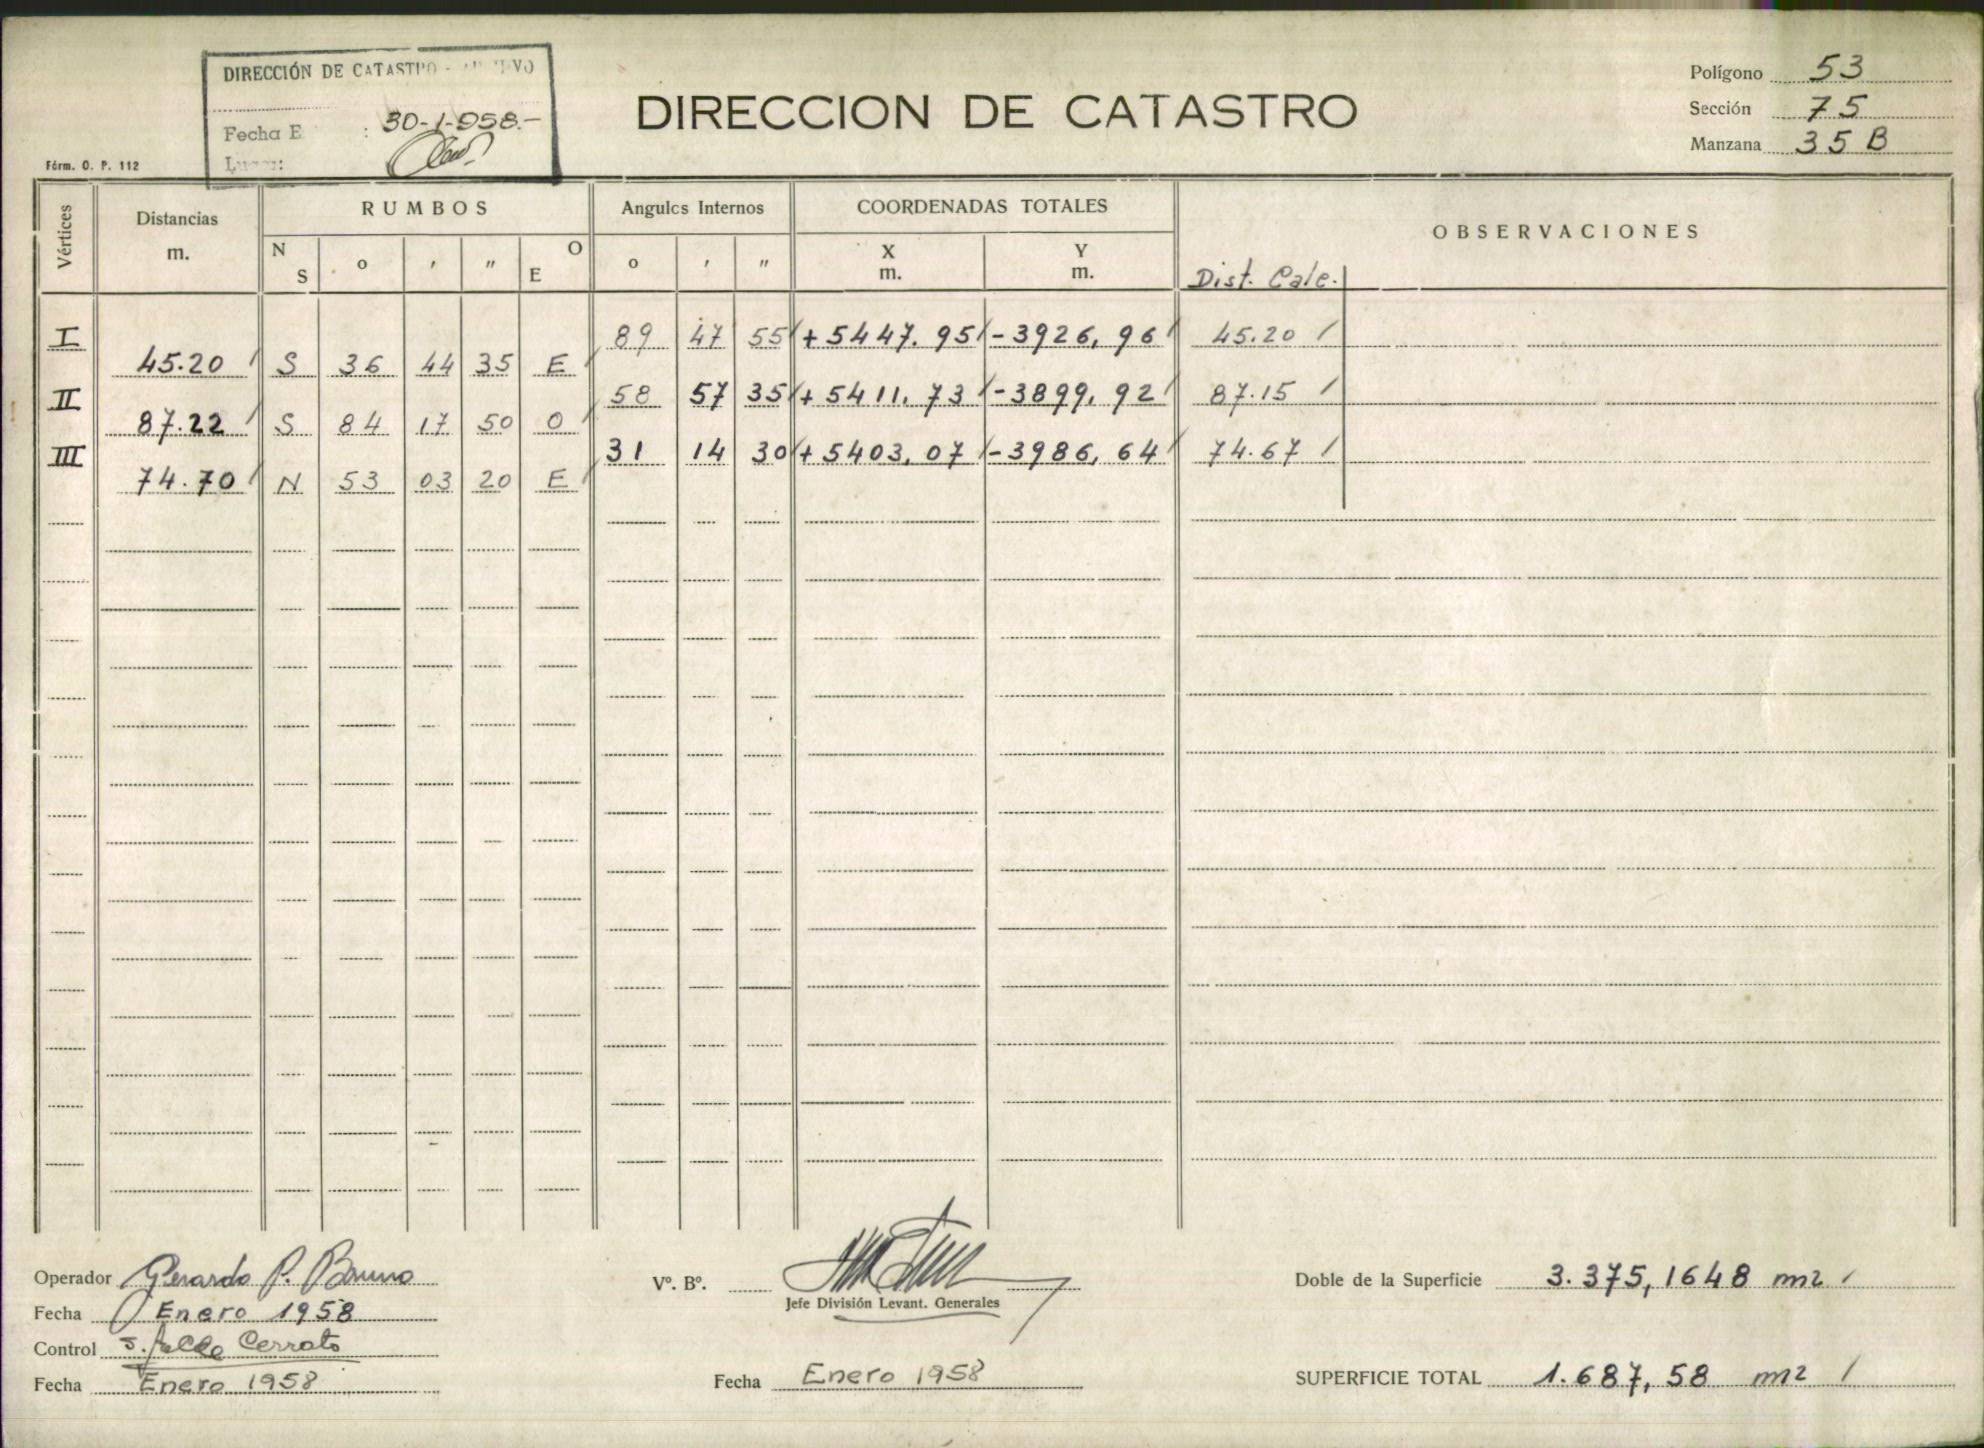 DIRECCIÓN DE CATASTRO -
Fecha E : 30-1-958.-
Fórm. O. P. 112
DIRECCION DE CATASTRO
Polígono 53
Sección 75
Manzana 35 B
Vértices Distancias m. RUMBOS Angulos Internos COORDENADAS TOTALES OBSERVACIONES
N S o ' " O E o ' " X m. Y m. Dist. Calc.
I 89 47 55 + 5447.95 - 3926,96 45.20
45.20 S 36 44 35 E
II 58 57 35 + 5411.73 - 3899,92 87.15
87.22 S 84 17 50 O
III 31 14 30 + 5403,07 - 3986,64 74.67
74.70 N 53 03 20 E
Operador Gerardo P. Bruno
Fecha Enero 1958
Control Cerrato
Fecha Enero 1958
Vº. Bº.
Jefe División Levant. Generales
Fecha Enero 1958
Doble de la Superficie 3.375,1648 m2
SUPERFICIE TOTAL 1.687,58 m2